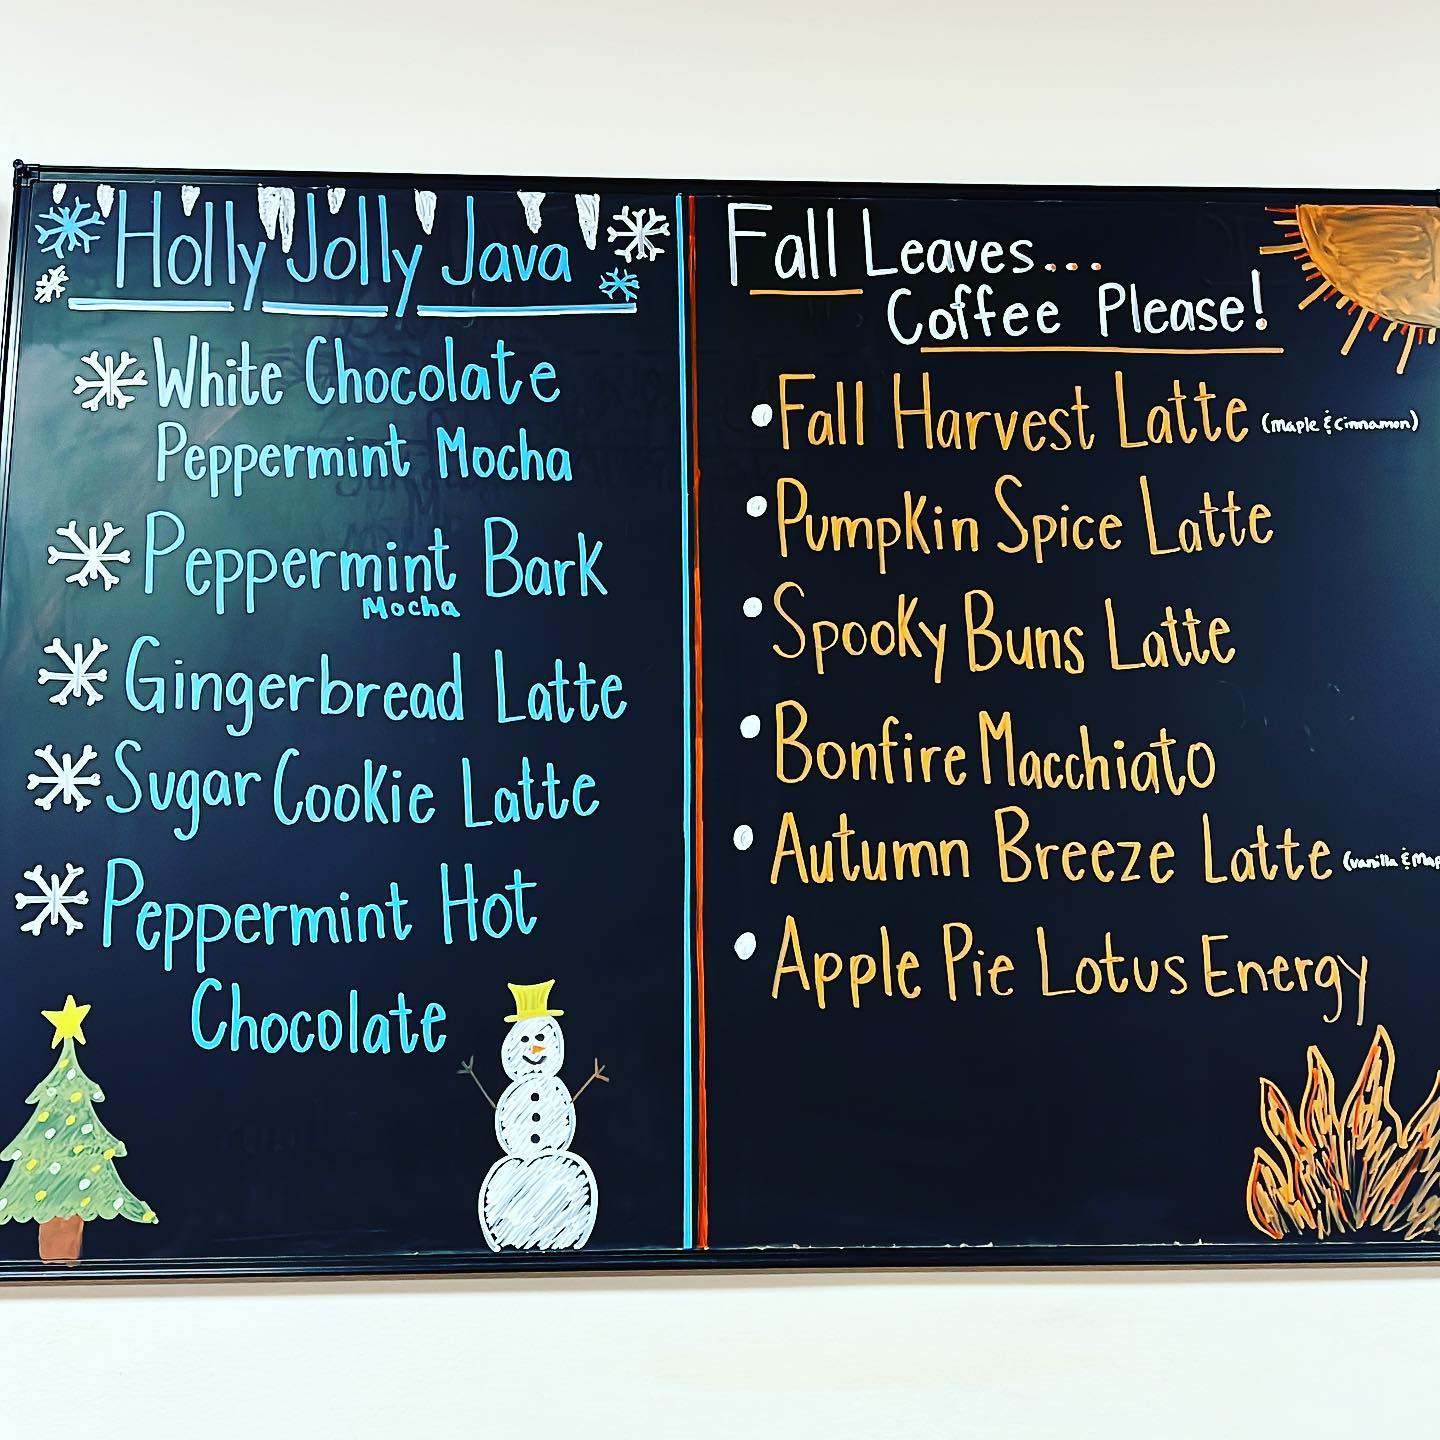 Holly Jolly Java
White Chocolate
Peppermint Mocha
Peppermint Bark
Mocha
Gingerbread Latte
Sugar Cookie Latte
Peppermint Hot
Chocolate
Fall Leaves...
Coffee Please!
Fall Harvest Latte (Maple & Cinnamon)
Pumpkin Spice Latte
Spooky Buns Latte
Bonfire Macchiato
Autumn Breeze Latte (Vanilla & Map
Apple Pie Lotus Energy